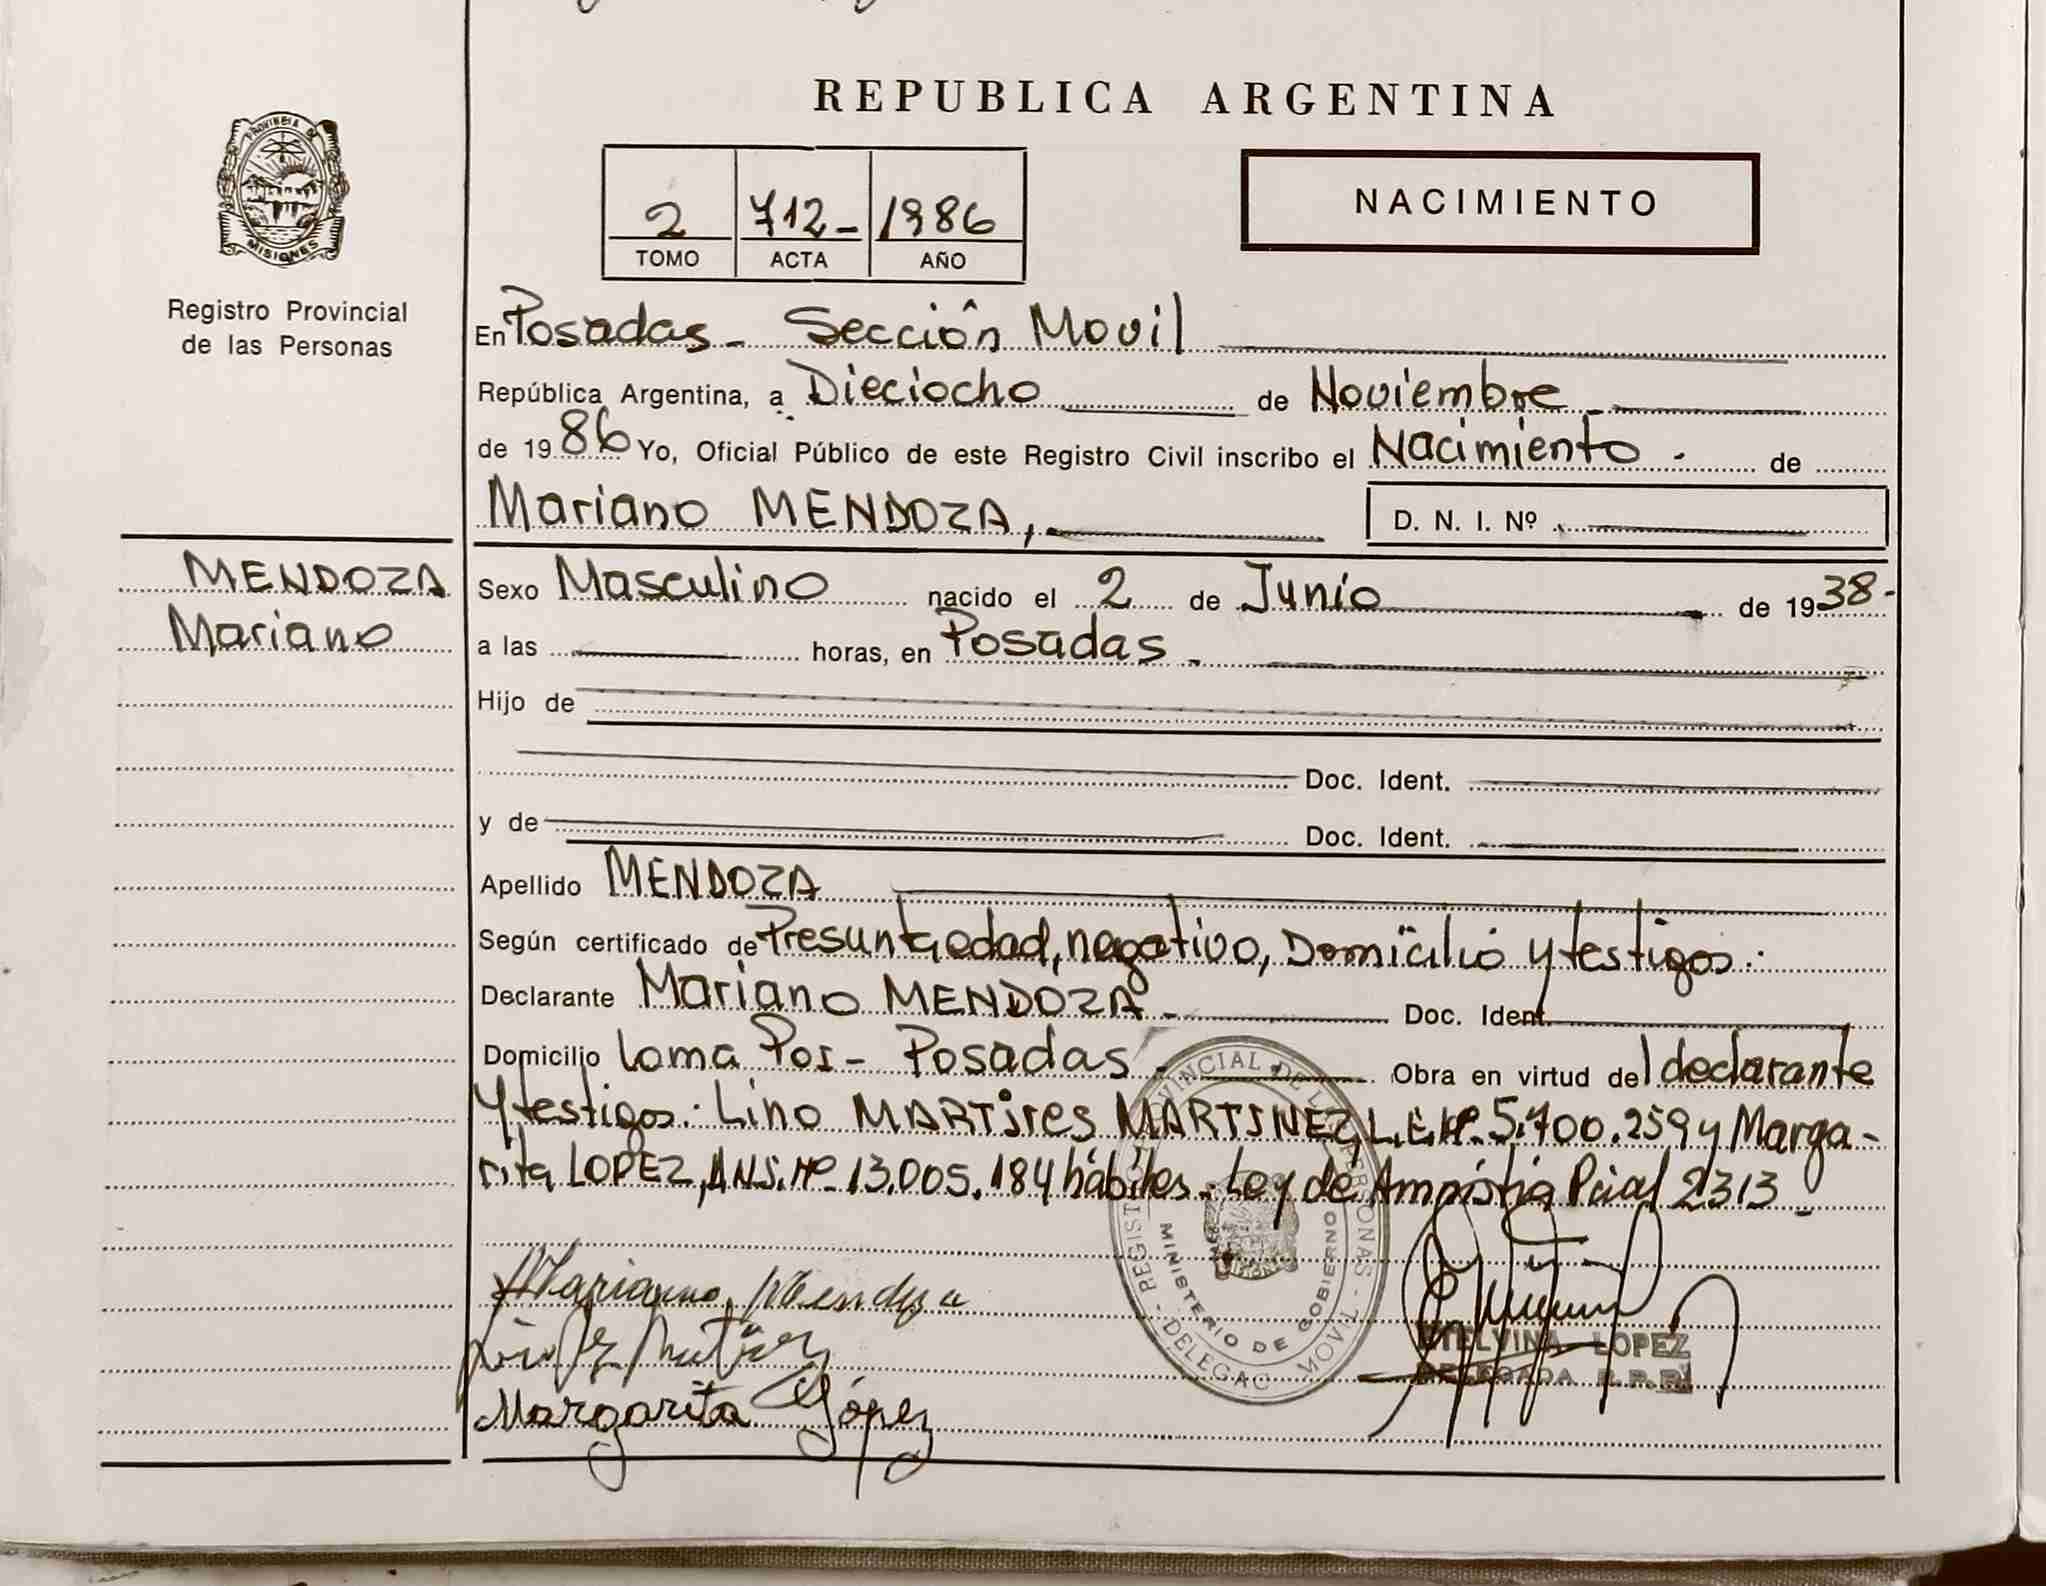 REPUBLICA ARGENTINA
PROVINCIA DE MISIONES
Registro Provincial
de las Personas
2 712- 1986
TOMO ACTA AÑO
NACIMIENTO
En Posadas - Sección Movil
República Argentina, a Dieciocho de Noviembre
de 1986 Yo, Oficial Público de este Registro Civil inscribo el Nacimiento . de
Mariano MENDOZA, D. N. I. Nº
MENDOZA
Mariano
Sexo Masculino nacido el 2 de Junio de 1938-
a las horas, en Posadas -
Hijo de
Doc. Ident.
y de Doc. Ident.
Apellido MENDOZA
Según certificado de Presunta edad, negativo, Domicilio y testigos:
Declarante Mariano MENDOZA - Doc. Ident.
Domicilio Loma Poi - Posadas - Obra en virtud del declarante
y testigos: Lino MARTires MARTINEZ, L.E.Nº 5.700.259 y Marga-
rita LOPEZ, Nº 13.005.184 hábiles - Ley de Amnistia Pcial 2313
REGISTRO PROVINCIAL DE LAS PERSONAS - DELEGAC. MOVIL
MINISTERIO DE GOBIERNO
Mariano Mendoza
Margarita López
ETELVINA LOPEZ
DELEGADA R.P.P.